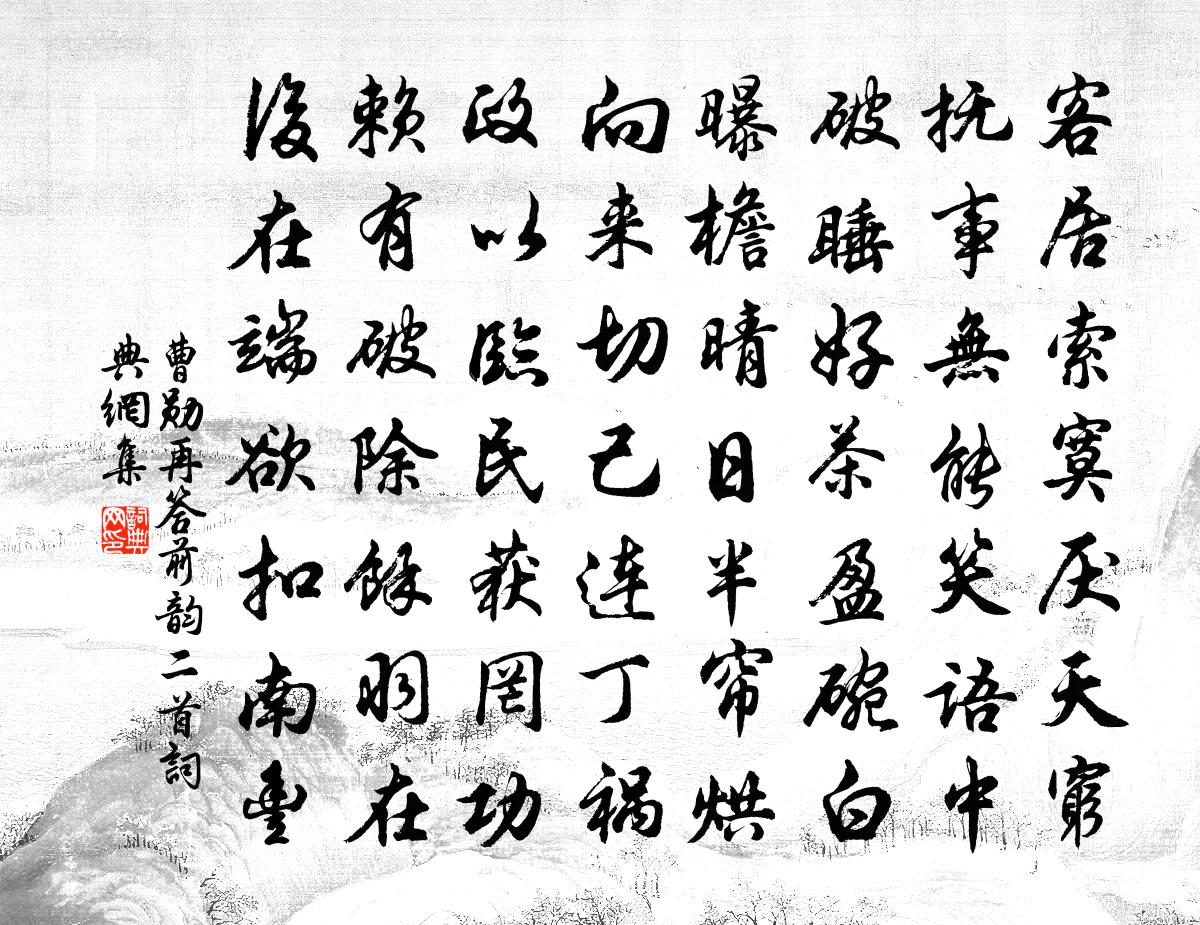 客居索寞厌天穷
抚事無能笑语中
破睡好茶盈碗白
曝檐晴日半帘烘
向来切己连丁祸
政以臨民获罔功
赖有破除馀羽在
後在端欲扣南豊
曹勋再答前韵二首詞
典網集
詞典网印